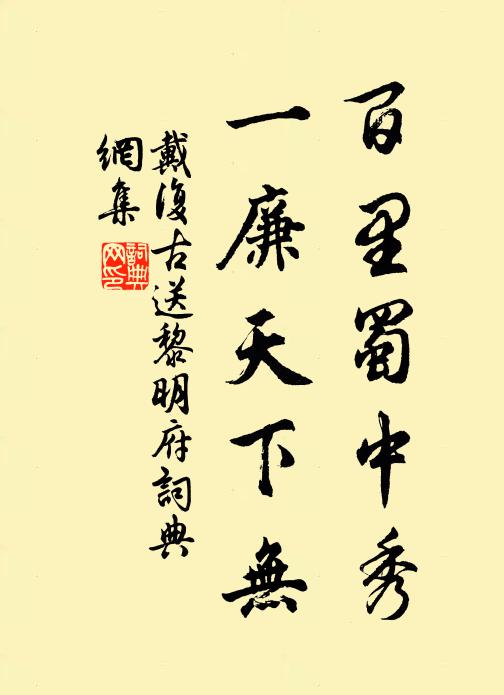 百里蜀中秀
一廉天下無
戴復古送黎明府詞典
網集
詞典
网印